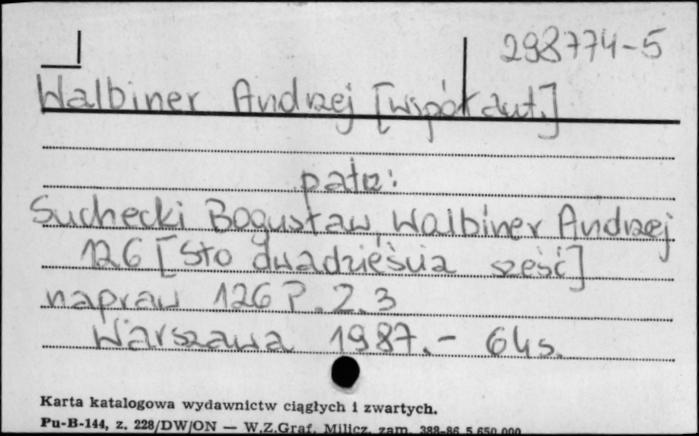 298774-5
Walbiner Andrzej [współaut.]
patrz:
Suchecki Bogusław, Walbiner Andrzej
126 [sto dwadzieścia sześć]
napraw 126P. Z. 3
Warszawa 1987.- 64s.
Karta katalogowa wydawnictw ciągłych i zwartych.
Pu-B-144, z. 228/DW/ON — W.Z.Graf. Milicz, zam. 388-86 5.650.000